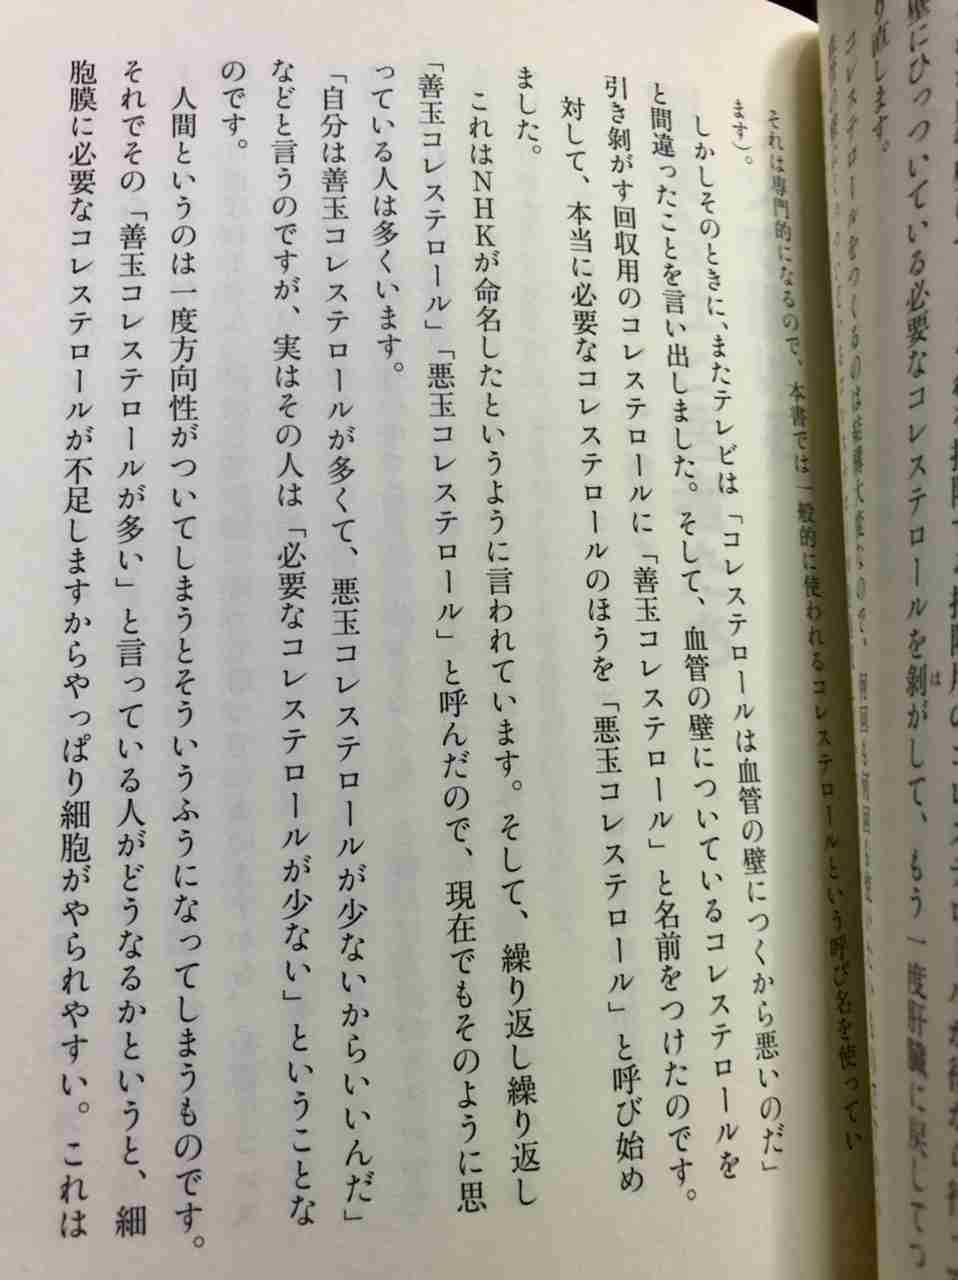 壁にひっついている必要なコレステロールを剥がして、もう一度肝臓に戻してつ
は
り直します。
コレステロールをつくるのは結構大変なので、何回も何回も
それは専門的になるので、本書では一般的に使われるコレステロールという呼び名を使ってい
ます）。
しかしそのときに、またテレビは「コレステロールは血管の壁につくから悪いのだ」
と間違ったことを言い出しました。そして、血管の壁についているコレステロールを
引き剥がす回収用のコレステロールに「善玉コレステロール」と名前をつけたのです。
対して、本当に必要なコレステロールのほうを「悪玉コレステロール」と呼び始め
ました。
これはNHKが命名したというように言われています。そして、繰り返し繰り返し
「善玉コレステロール」「悪玉コレステロール」と呼んだので、現在でもそのように思
っている人は多くいます。
「自分は善玉コレステロールが多くて、悪玉コレステロールが少ないからいいんだ」
などと言うのですが、実はその人は「必要なコレステロールが少ない」ということな
のです。
人間というのは一度方向性がついてしまうとそういうふうになってしまうものです。
それでその「善玉コレステロールが多い」と言っている人がどうなるかというと、細
胞膜に必要なコレステロールが不足しますからやっぱり細胞がやられやすい。これは